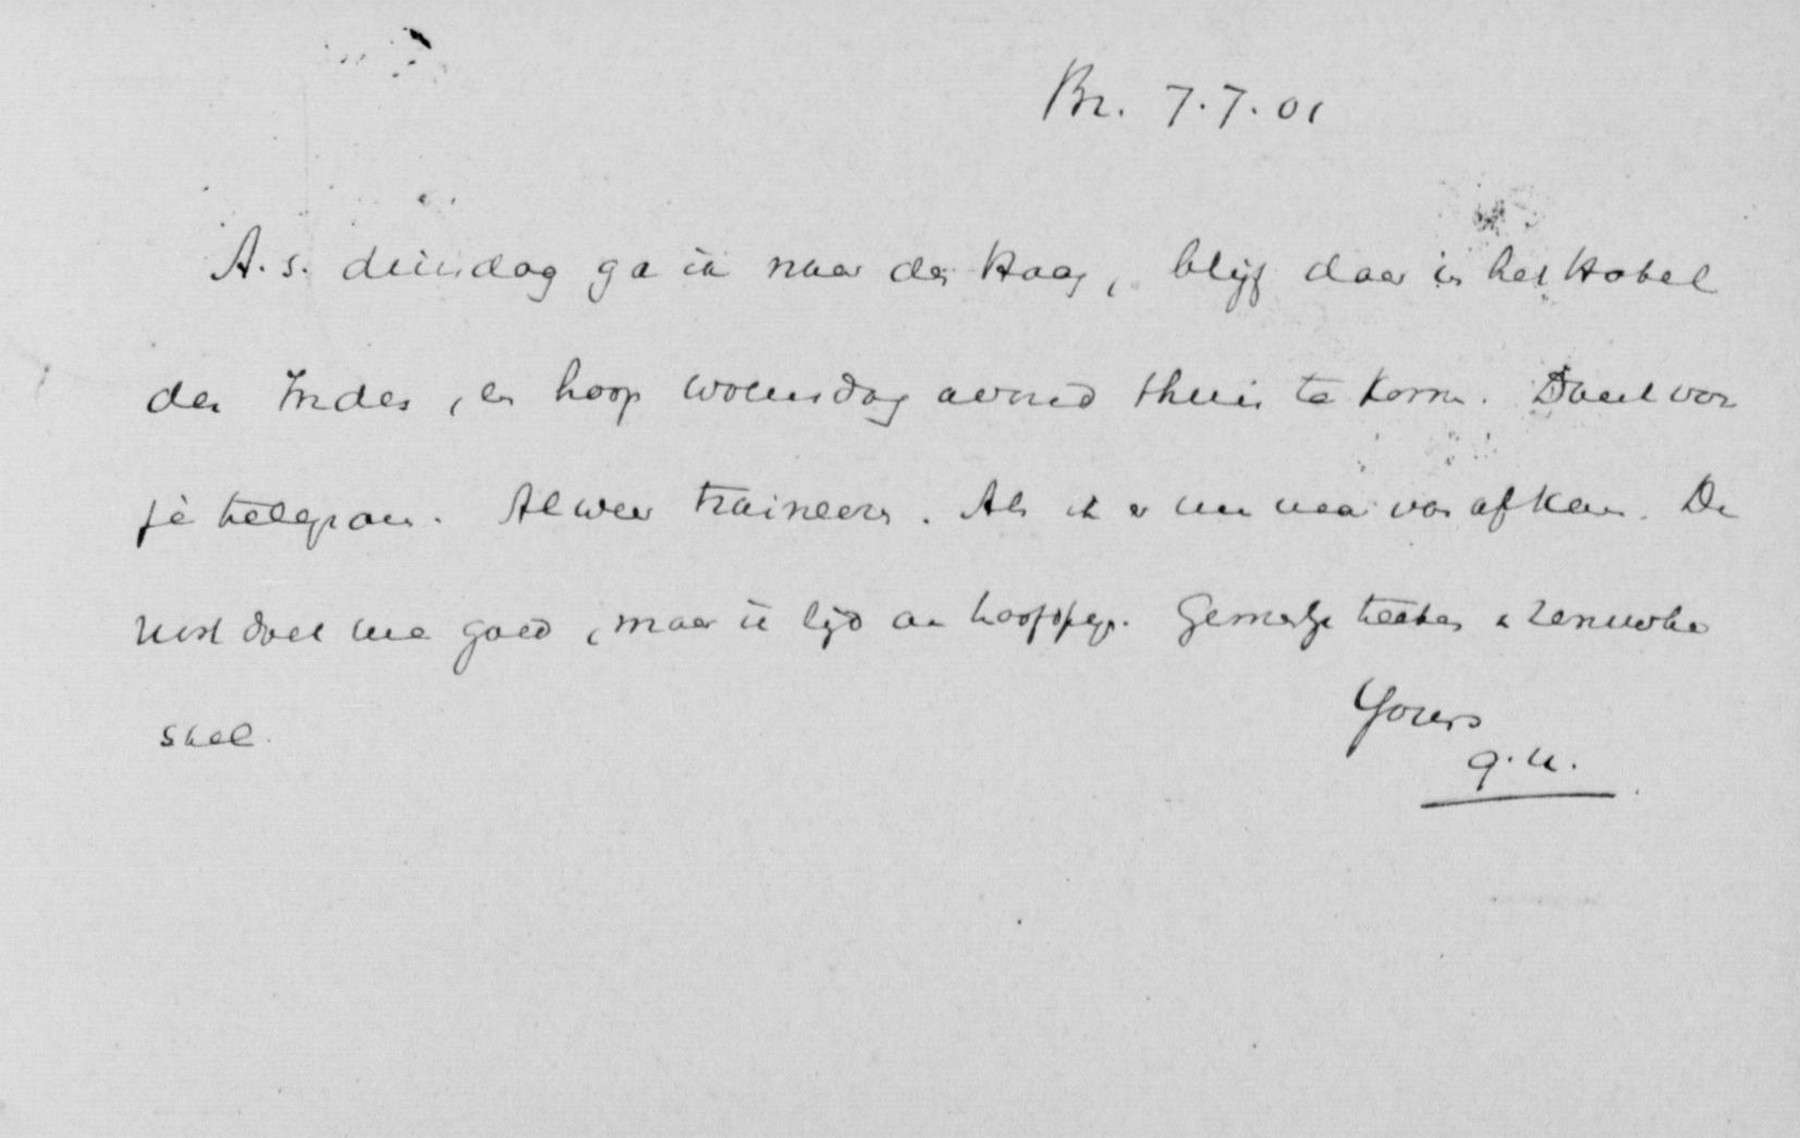 Br. 7.7.01
A.s. dinsdag ga ik naar den Haag, blijf daar in het Hotel
des Indes, en hoop woensdag avond thuis te komen. Dank voor
je telegram. Alweer traineeren. Als ik er nu maar van af kan. De
rust doet me goed, maar ik lijd aan hoofdpijn.
Yours